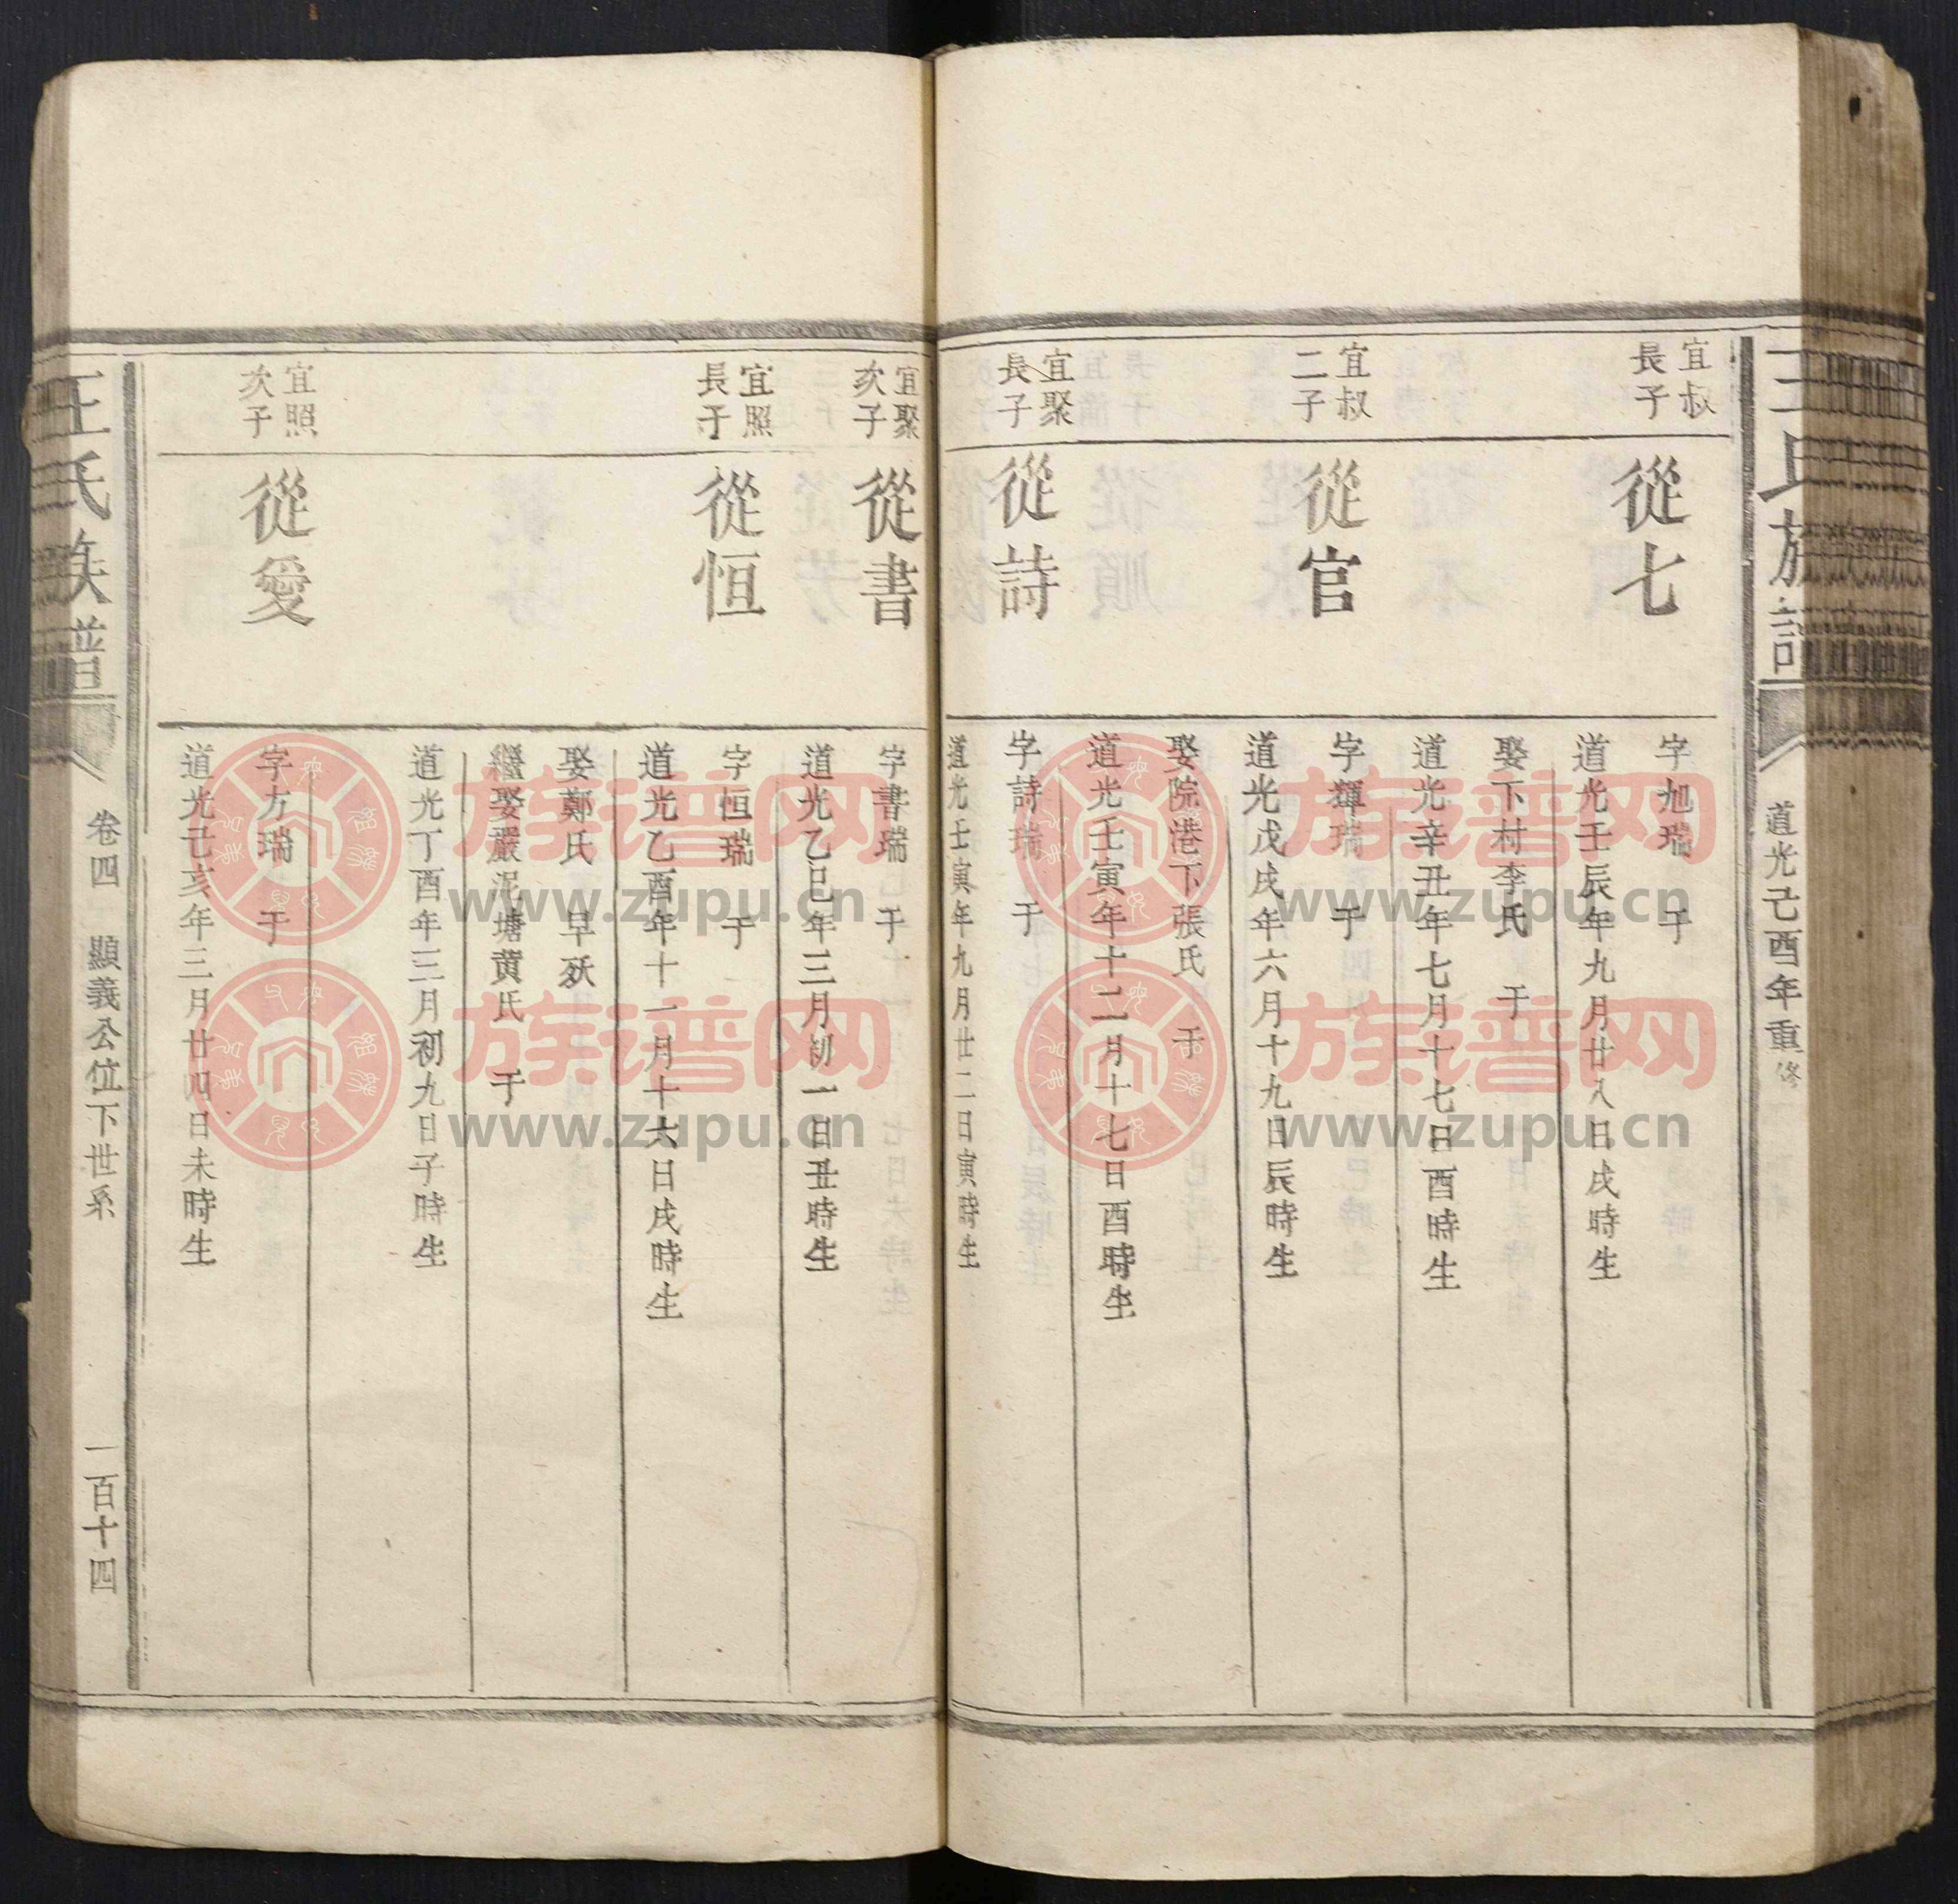 王氏族譜
道光己酉年重修
宜叔長子
從七
字旭瑞 于
道光壬辰年九月廿八日戌時生
娶下村李氏 于
道光辛丑年七月十七日酉時生
宜叔二子
從官
字輝瑞 于
道光戊戌年六月十九日辰時生
娶院港下張氏 于
道光壬寅年十二月十七日酉時生
宜聚長子
從詩
字詩瑞 于
道光壬寅年九月廿二日寅時生
宜聚次子
從書
字書瑞 于
道光乙巳年三月初一日丑時生
宜照長子
從恒
字恒瑞 于
道光乙酉年十一月十六日戌時生
娶鄭氏 早殀
繼娶嚴泥塘黄氏 于
道光丁酉年三月初九日子時生
宜照次子
從愛
字方瑞 于
道光己亥年三月廿四日未時生
王氏族譜
卷四 顯義公位下世系
一百十四
族谱网
www.zupu.cn
族谱网
www.zupu.cn
族谱网
www.zupu.cn
族谱网
www.zupu.cn